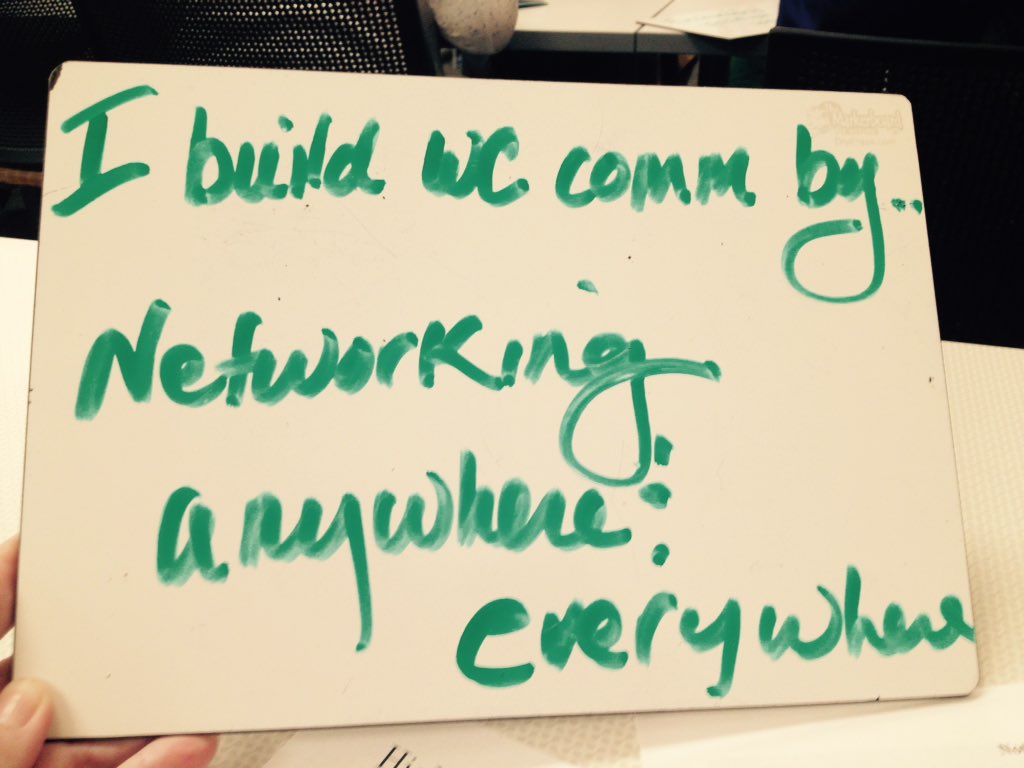 I build WC comm by...
Networking
anywhere :
everywhere
Markerboard